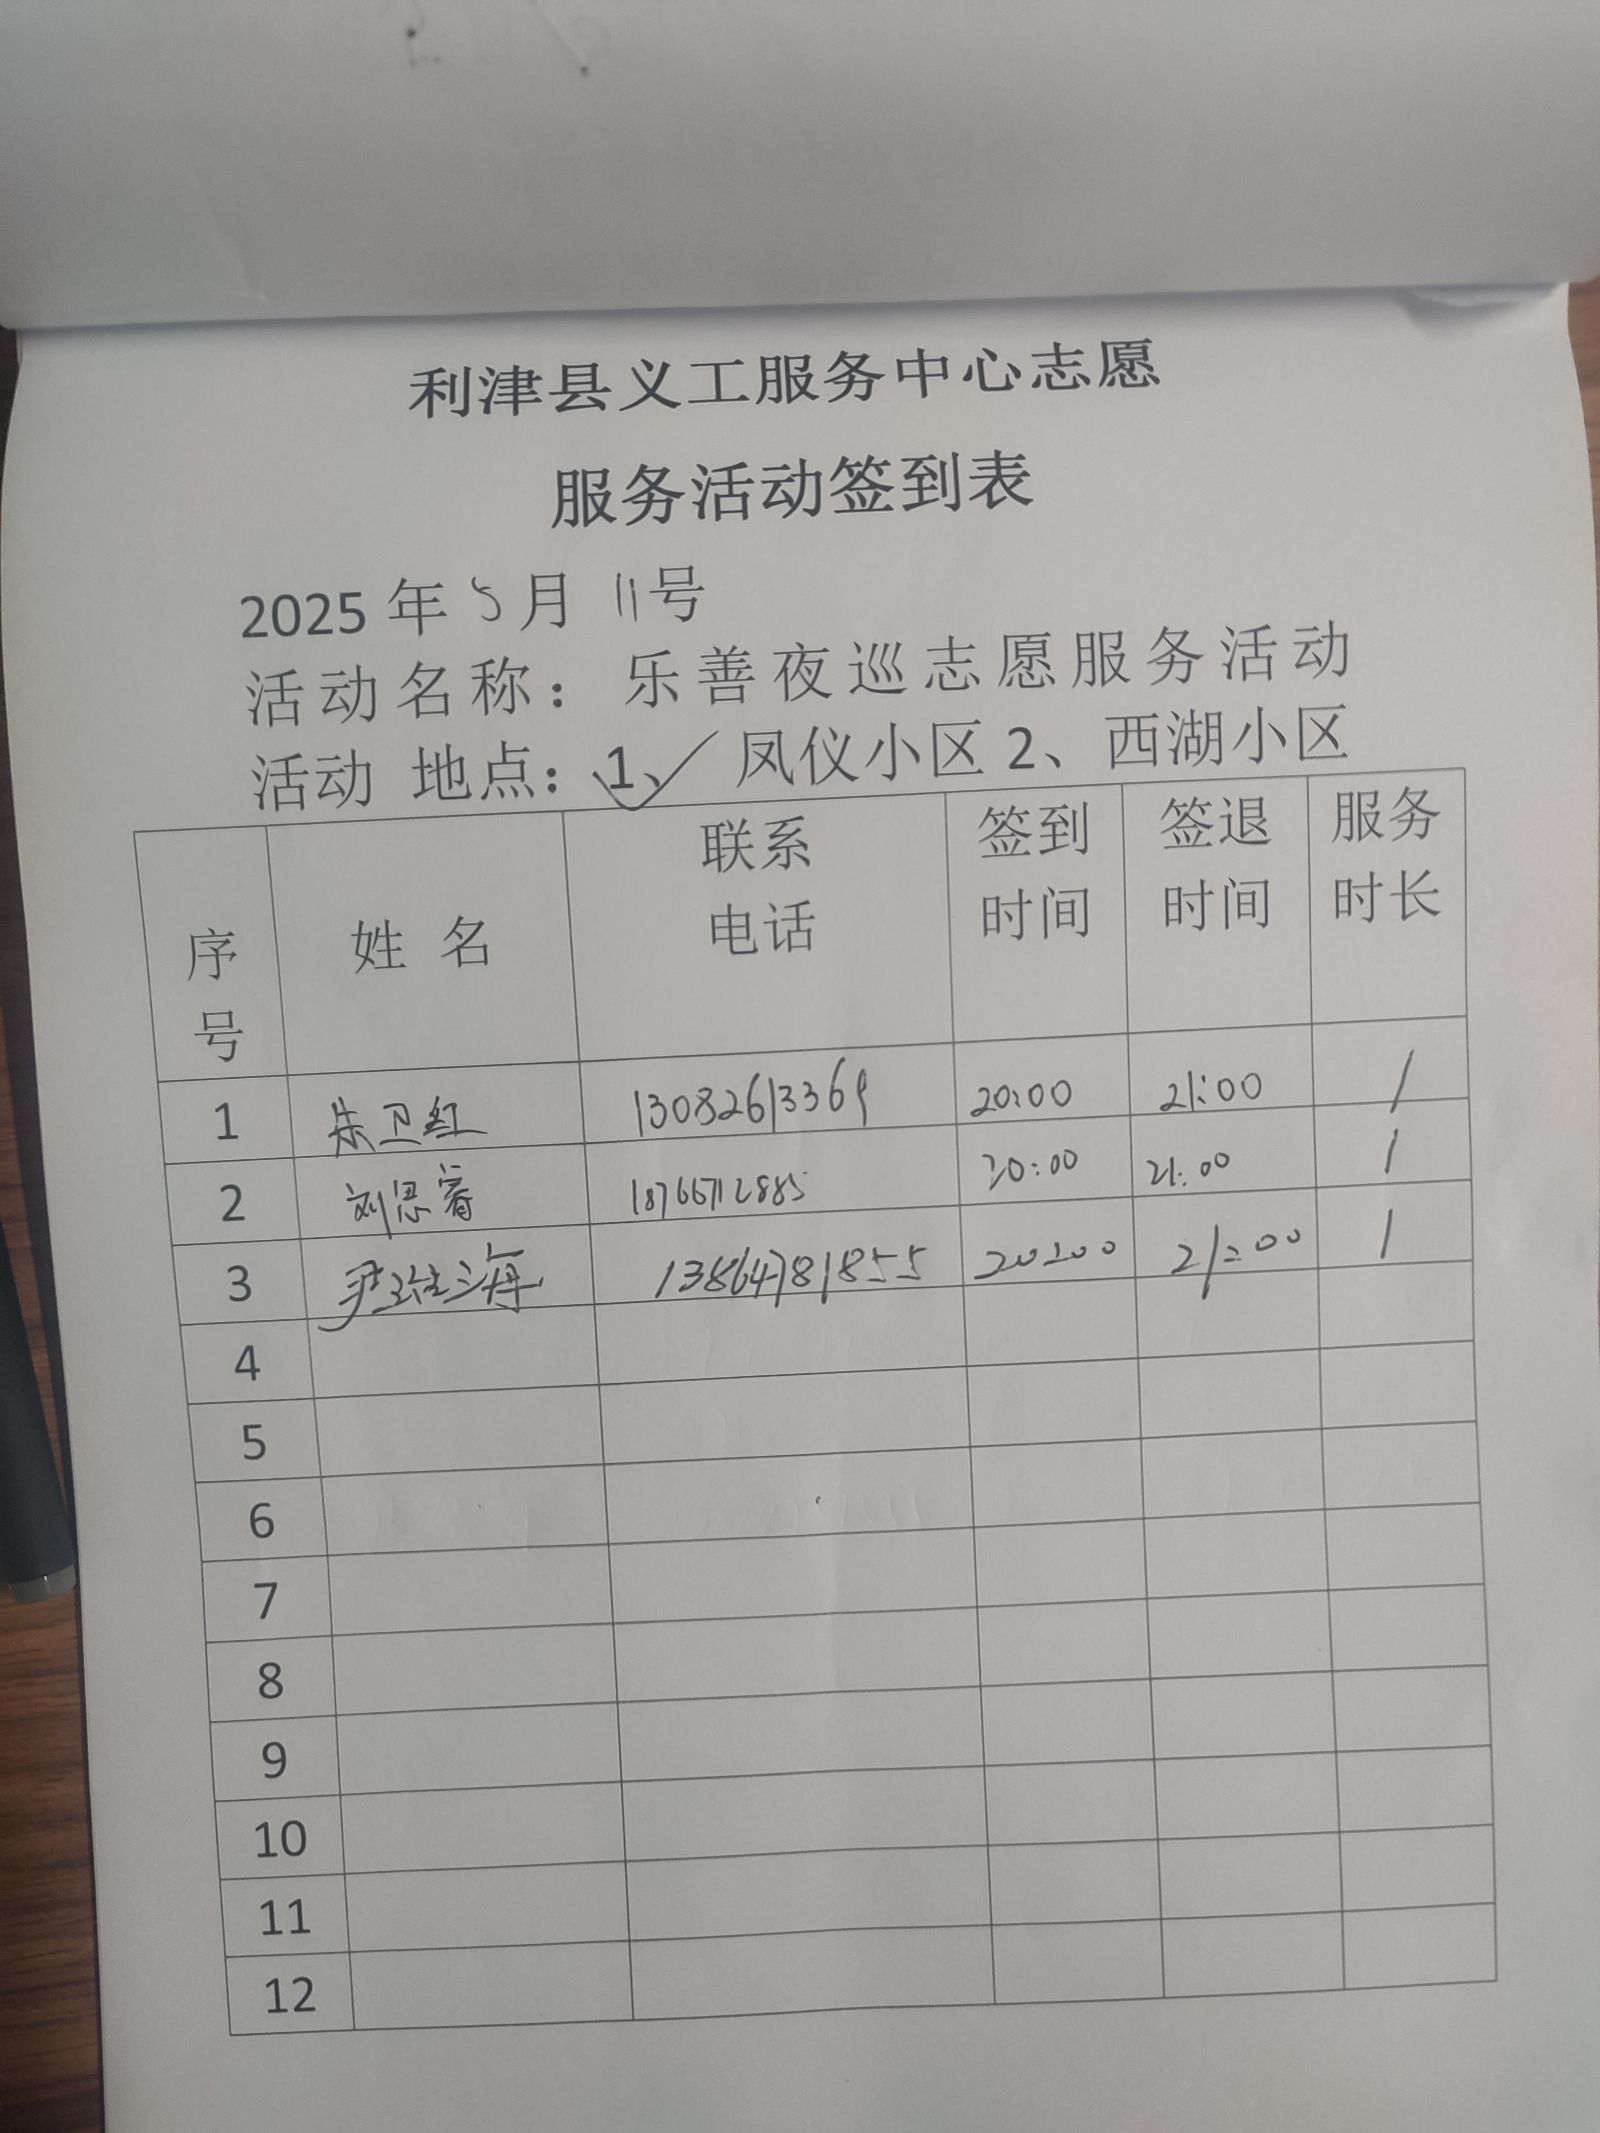 利津县义工服务中心志愿
服务活动签到表
2025 年 5 月 11号
活动名称：乐善夜巡志愿服务活动
活动 地点：1、✓ 凤仪小区 2、西湖小区
序号 姓 名 联系电话 签到时间 签退时间 服务时长
1 朱卫红 13082613369 20:00 21:00 1
2 刘思睿 18766712885 20:00 21:00 1
3 尹海 13864781855 20:00 21:00 1
4
5
6
7
8
9
10
11
12